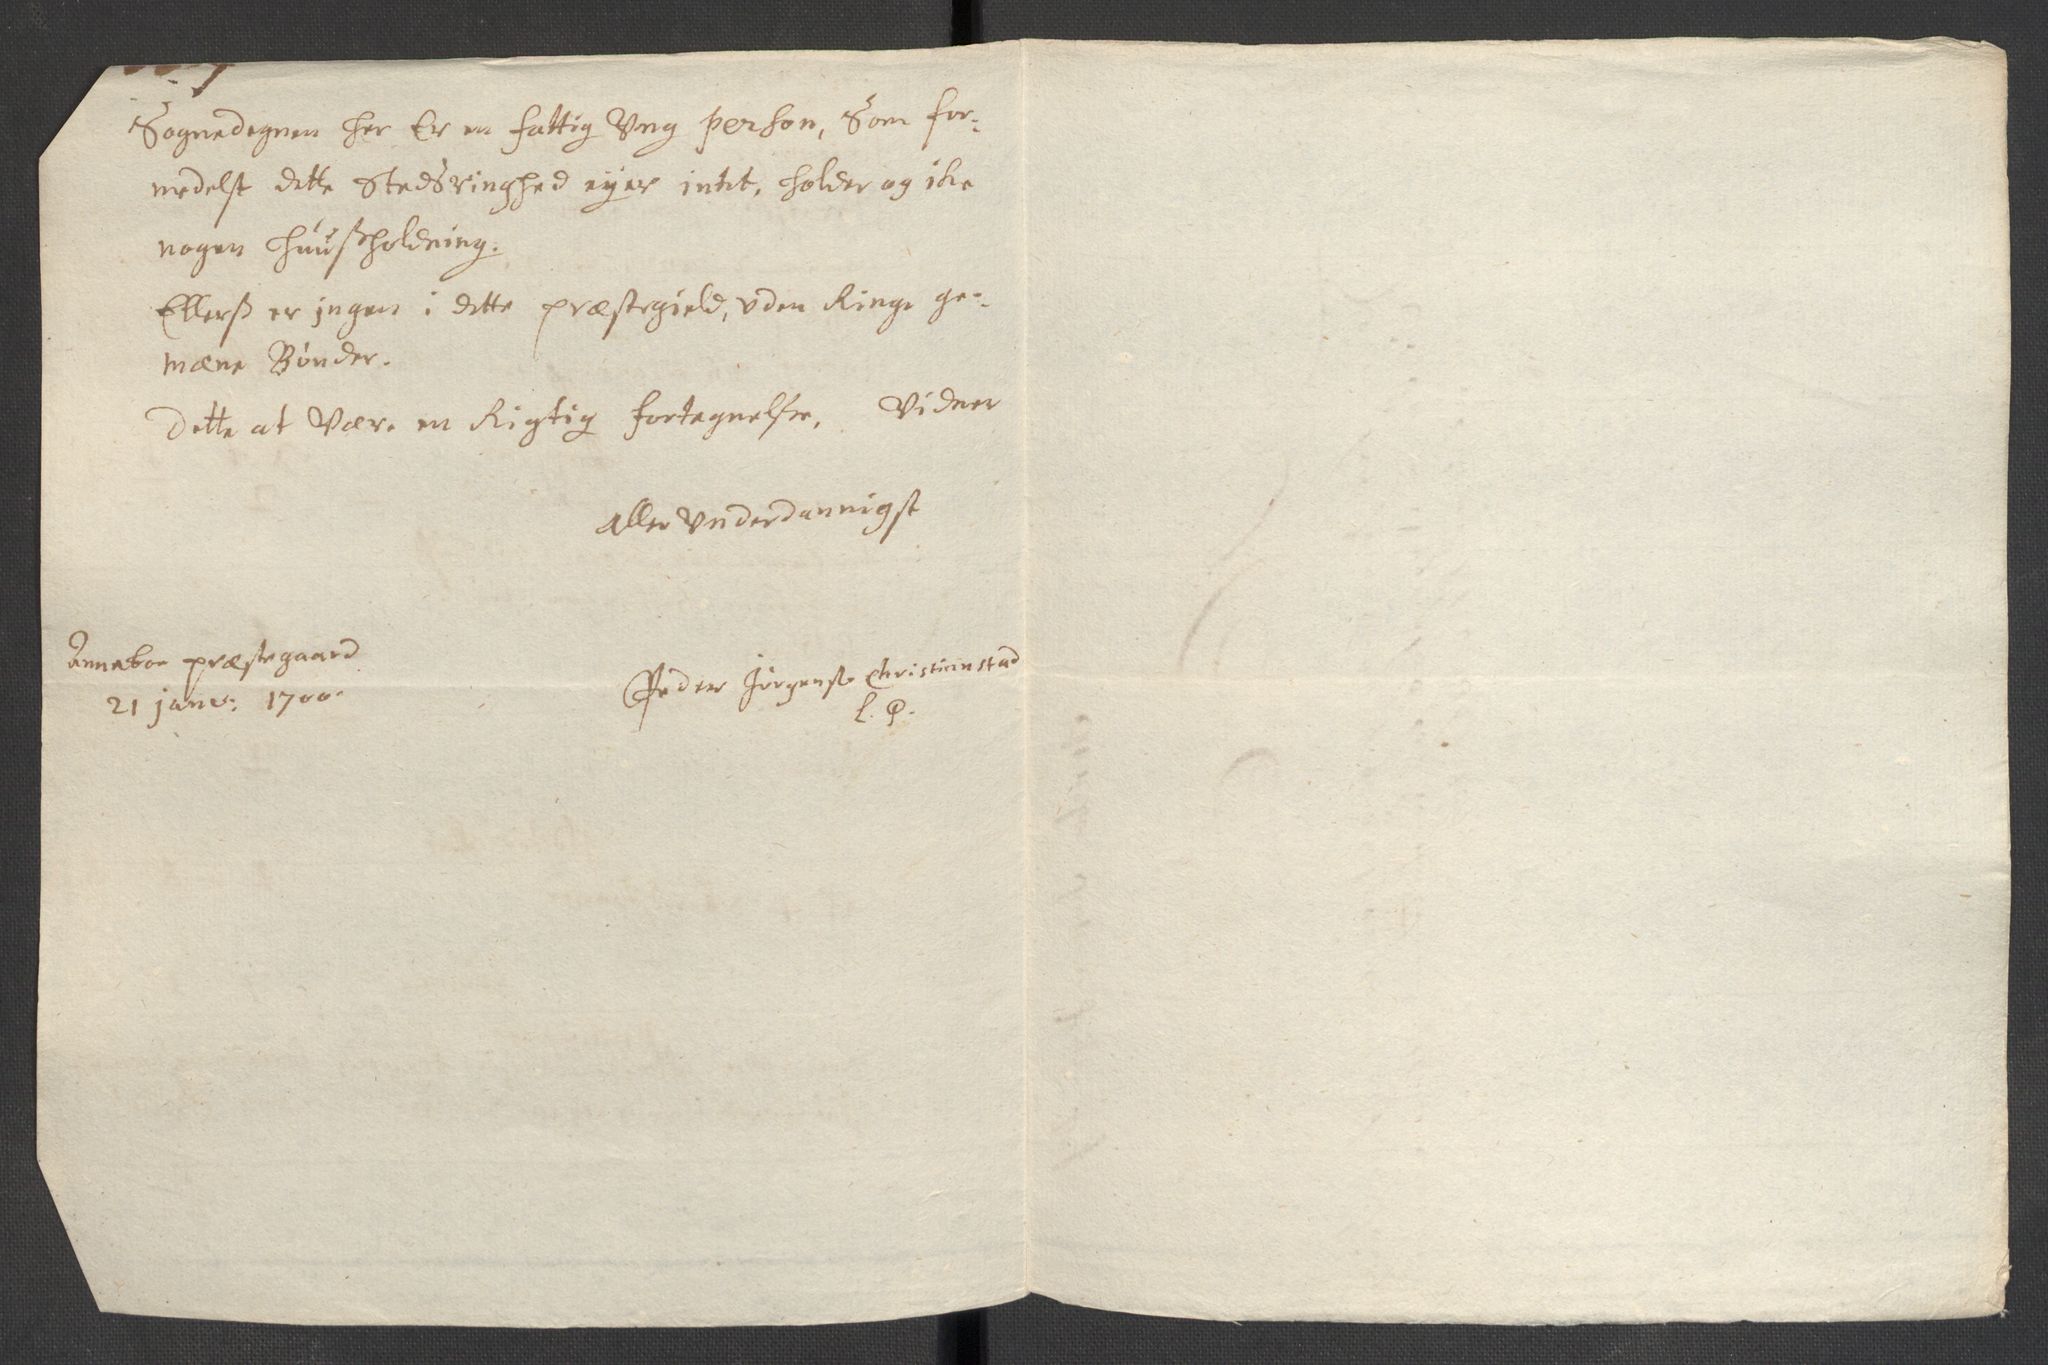 Sognedegnen her Er en fattig Vng person, Som for-
medelst dette Stedsringhed eyer intet, holder og iche
nogen huußholdning.
Ellerß er jngen i dette præstegield, vden Ringe ge-
mæne Bønder.
Dette at Være en Rigtig fortegnelse, Vidner
aller Vnderdannigst
præstegaard
21 janv: 1700.
Peder Jörgensß Christianstad